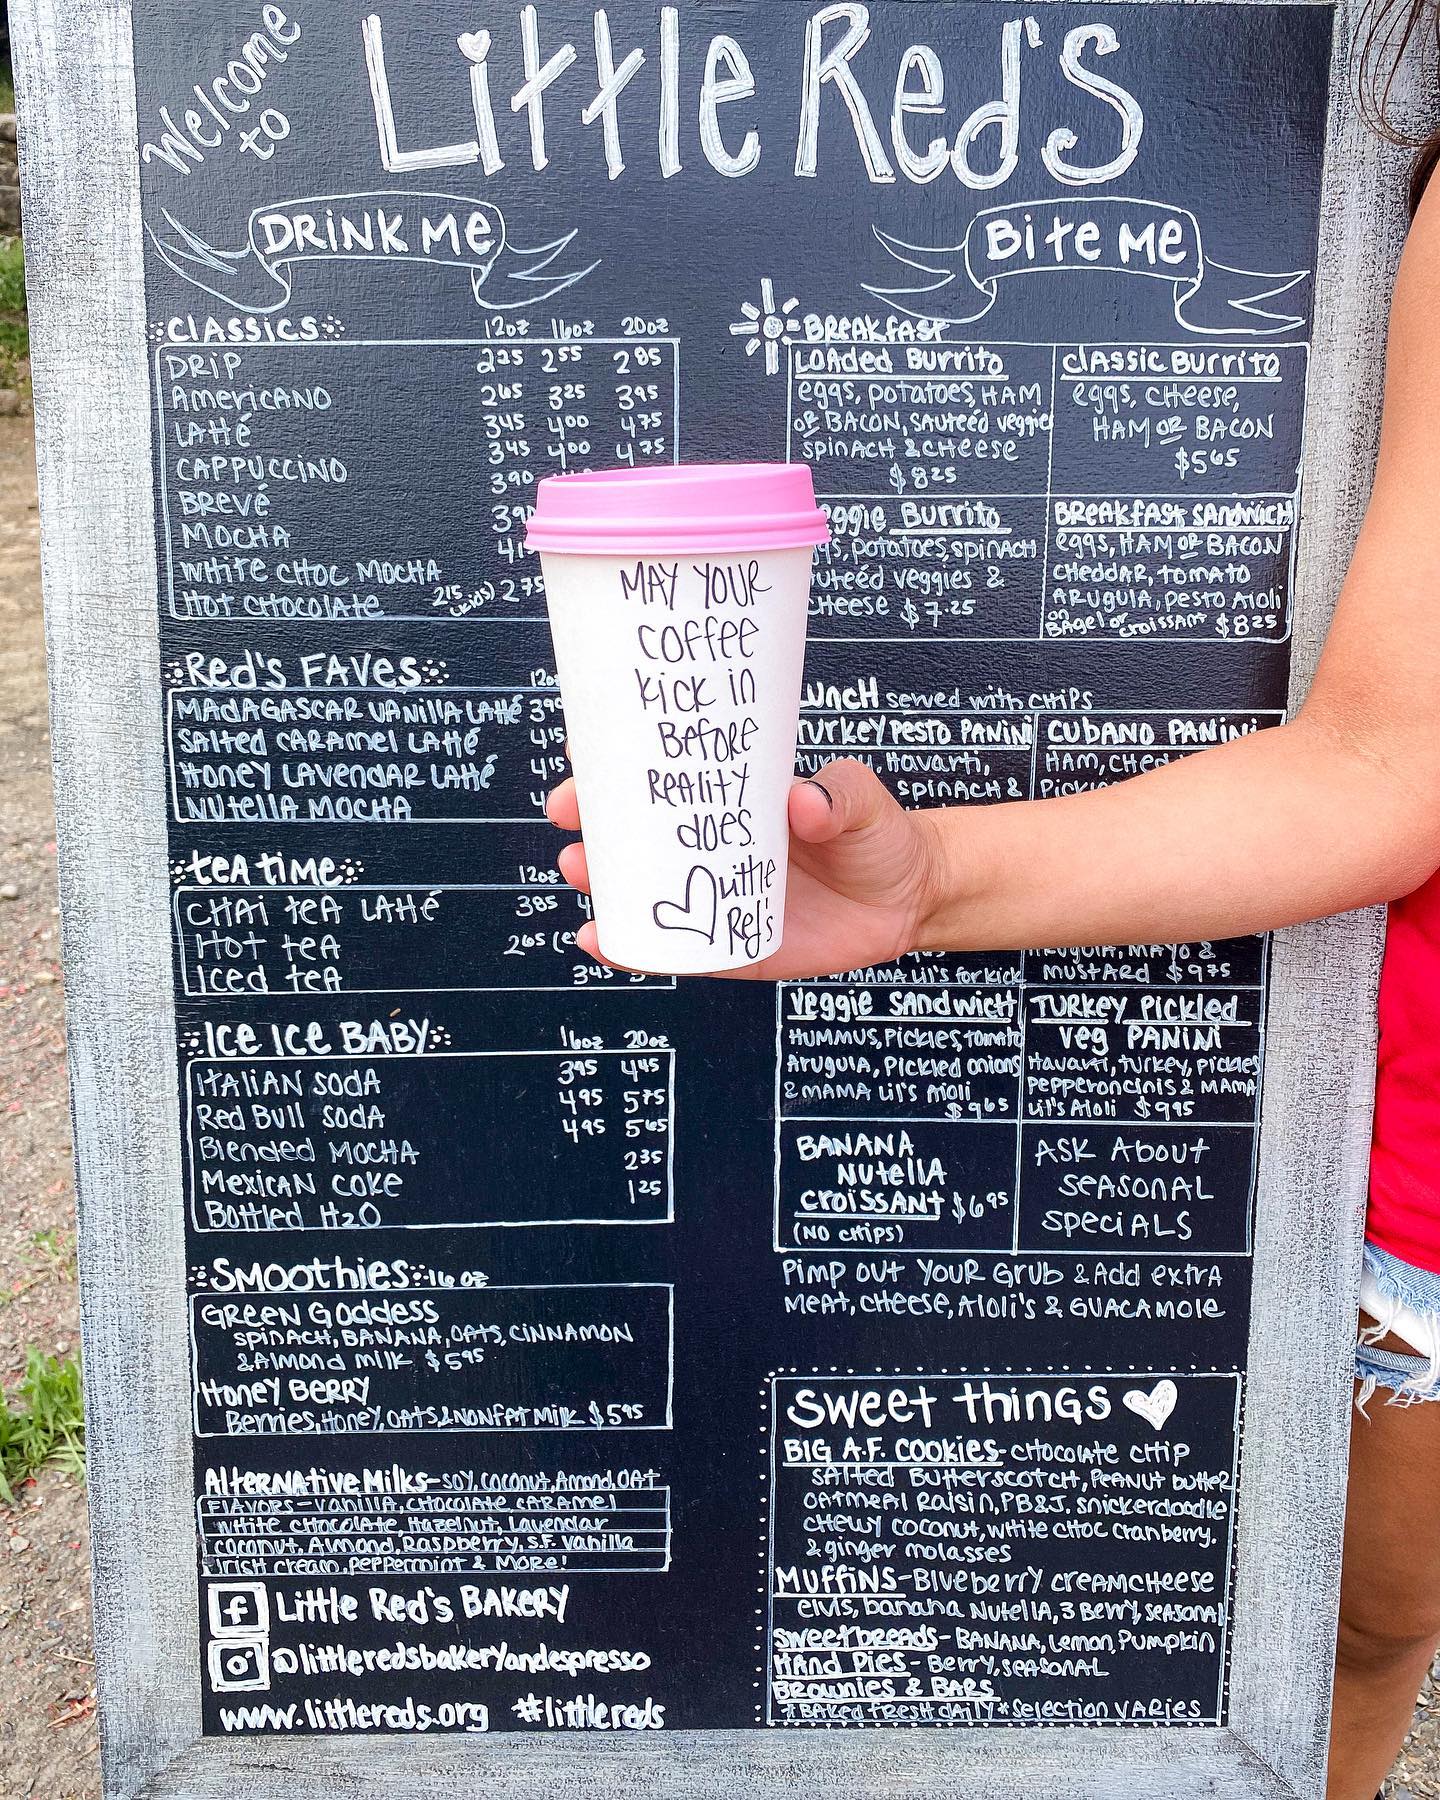 Welcome
to
Little Red's
DRINK ME
CLASSICS 12oz 16oz 20oz
DRIP 225 255 285
AMERICANO 265 325 395
LATTÉ 345 400 475
CAPPUCCINO 345 400 475
BREVÉ 390
MOCHA
WHITE CHOC MOCHA
HOT CHOCOLATE 215 (kids) 275
Red's FAVES
MADAGASCAR VANILLA LATTÉ
SALTED CARAMEL LATTÉ 415
HONEY LAVENDAR LATTÉ 415
NUTELLA MOCHA
TEA TIME 12oz
CHAI TEA LATTÉ 385
HOT TEA 265
ICED TEA 345
ICE ICE BABY 16oz 20oz
ITALIAN SODA 395 445
Red Bull SODA 495 575
Blended MOCHA 495 565
MEXICAN COKE 235
Bottled H2O 125
SMOOTHIES 16 oz
GREEN GODDESS
SPINACH, BANANA, OATS, CINNAMON
& ALMOND MILK $595
HONEY BERRY
Berries, Honey, OATS, & NONFAT MILK $595
ALTERNATIVE MILKS- SOY, COCONUT, Amond, OAT
FLAVORS - VANILLA, CHOCOLATE CARAMEL
WHITE CHOCOLATE, HAZELNUT, LAVENDAR
COCONUT, ALMOND, RASPBERRY, S.F. VANILLA
IRISH CREAM, PEPPERMINT & MORE!
f Little Red's BAKERY
@littleredsbakeryandespresso
www.littlereds.org #littlereds
MAY YOUR
COFFEE
KICK IN
BEFORE
REALITY
does.
Little
Red's
Bite ME
BREAKFAST
LOADED BURRITO
eggs, potatoes, HAM
OR BACON, SAUTEÉD veggies
SPINACH & CHEESE
$825
CLASSIC BURRITO
eggs, CHEESE,
HAM OR BACON
$565
Burrito
potatoes, SPINACH
veggies &
CHEESE $7.25
BREAKFAST SANDWICH
eggs, HAM OR BACON
CHEDDAR, TOMATO
ARUGULA, PESTO AIOLI
on BAGEL or CROISSANT $825
served with CHIPS
TURKEY PESTO PANINI
Turkey, HAVARTI,
SPINACH &
CUBANO PANINI
HAM,
MAYO &
MUSTARD $975
w/ MAMA LIL'S for kick
Veggie SANDWICH
HUMMUS, PICKLES, TOMATO
ARUGULA, PICKLED ONIONS
& MAMA LIL'S AIOLI
$965
TURKEY PICKLED
VEG PANINI
HAVARTI, TURKEY, PICKLES
PEPPERONCINIS & MAMA
LIL'S AIOLI $995
BANANA
NUTELLA
CROISSANT $695
(NO CHIPS)
ASK ABOUT
SEASONAL
SPECIALS
PIMP OUT YOUR GRUB & Add EXTRA
MEAT, CHEESE, AIOLI'S & GUACAMOLE
SWEET THINGS
BIG A.F. COOKIES- CHOCOLATE CHIP
SALTED BUTTERSCOTCH, PEANUT BUTTER
OATMEAL RAISIN, PB&J, SNICKERDOODLE
CHEWY COCONUT, WHITE CHOC CRANBERRY.
& GINGER MOLASSES
MUFFINS- BLUEBERRY CREAMCHEESE
ELVIS, BANANA NUTELLA, 3 BERRY, SEASONAL
SWEETBREADS- BANANA, LEMON, PUMPKIN
HAND PIES- BERRY, SEASONAL
BROWNIES & BARS
*BAKED FRESH DAILY *SELECTION VARIES